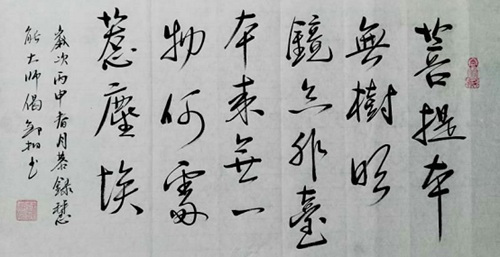 菩提本
無樹明
鏡亦非臺
本来無一
物何處
惹塵埃
歲次丙申春月恭錄慧
能大師偈书